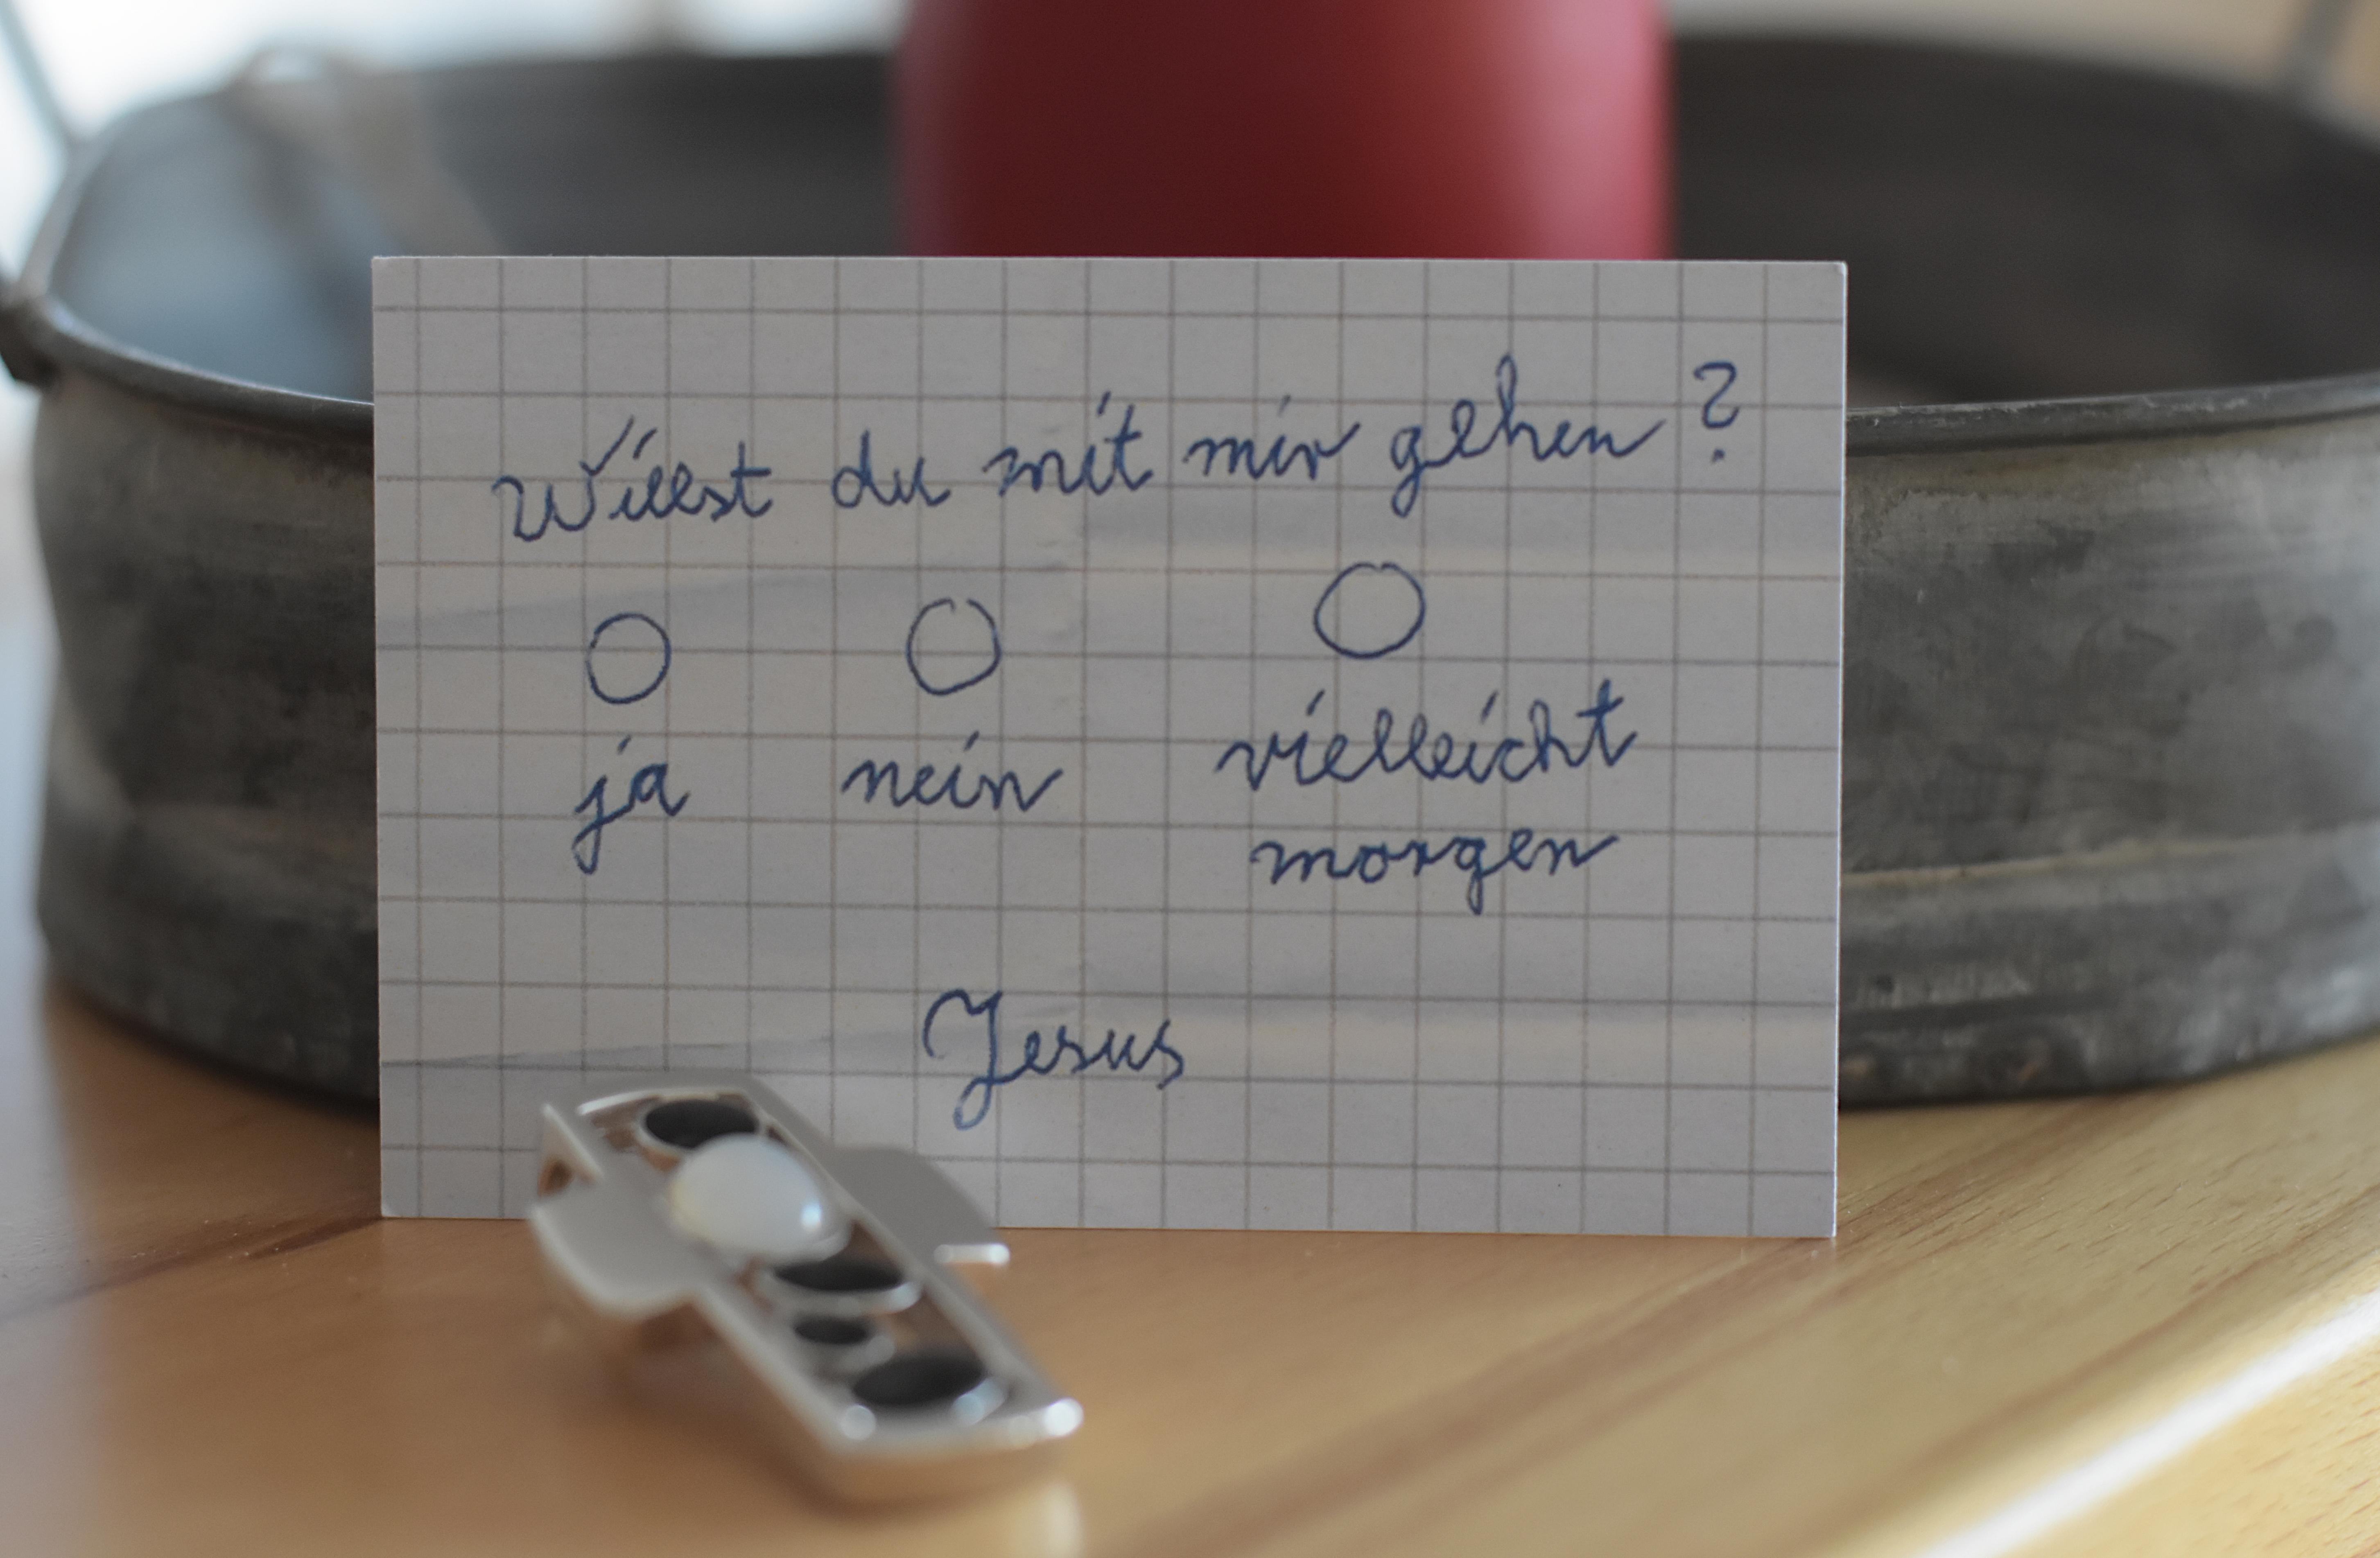 Willst du mit mir gehen?
ja nein vielleicht
morgen
Jesus